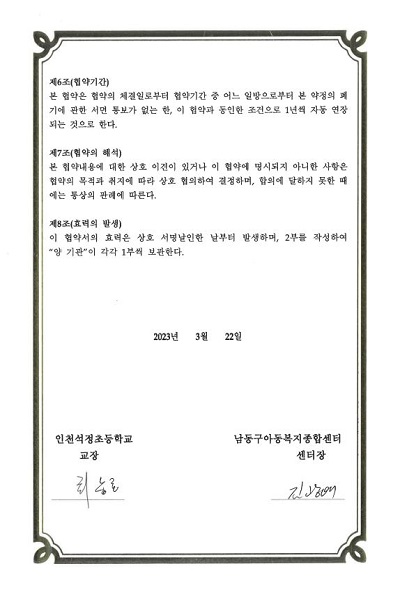 제6조(협약기간)
본 협약은 협약의 체결일로부터 협약기간 중 어느 일방으로부터 본 약정의 폐
기에 관한 서면 통보가 없는 한, 이 협약과 동일한 조건으로 1년씩 자동 연장
되는 것으로 한다.
제7조(협약의 해석)
본 협약내용에 대한 상호 이견이 있거나 이 협약에 명시되지 아니한 사항은
협약의 목적과 취지에 따라 상호 협의하여 결정하며, 합의에 달하지 못한 때
에는 통상의 판례에 따른다.
제8조(효력의 발생)
이 협약서의 효력은 상호 서명날인한 날부터 발생하며, 2부를 작성하여
"양 기관"이 각각 1부씩 보관한다.
2023년 3월 22일
인천석정초등학교 남동구아동복지종합센터
교장 센터장